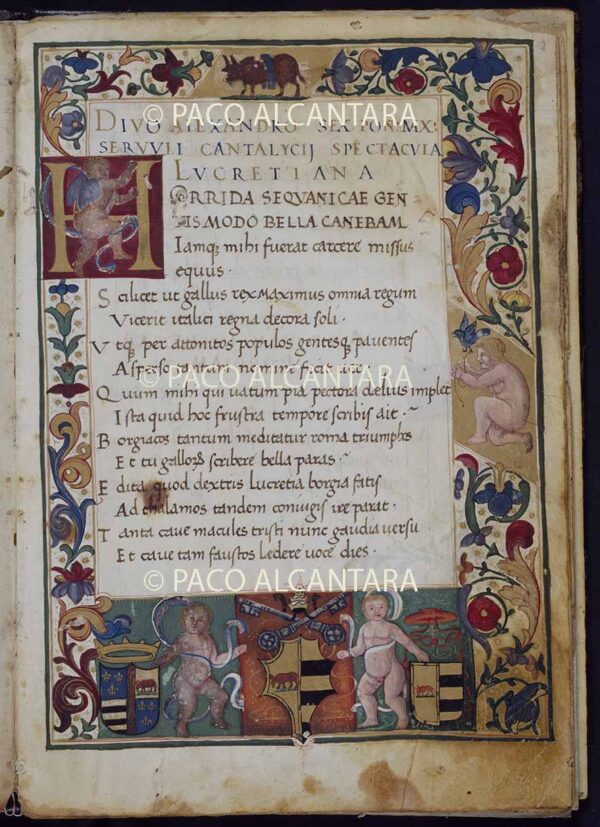 © PACO ALCANTARA
DIVO ALEXANDRO SEX PON MX:
SERVVLI CANTALYCIJ SPECTACVLA
LVCRETIANA
HORRIDA SEQVANICAE GEN
TIS MODO BELLA CANEBAM
Iamq; mihi fuerat carcere missus
equus.
Scilicet ut gallus rex maximus omnia regum
Vicerit italici regna decora soli.
Vtq; per attonitos populos gentesq; pauentes
Asperso tantum nomine
© PACO ALCANTARA
Quum mihi qui uatum pia pectora Delius implet
Ista quid hoc frustra tempore scribis ait.
Borgiacos tantum meditatur roma triumphos
Et tu galloꝝ scribere bella paras.
Edita quod dextris lucretia borgia fatis
Ad thalamos tandem coniugis ire parat.
Tanta caue macules tristi nunc gaudia uersu
Et caue tam faustos ledere uoce dies.
© PACO ALCANTARA